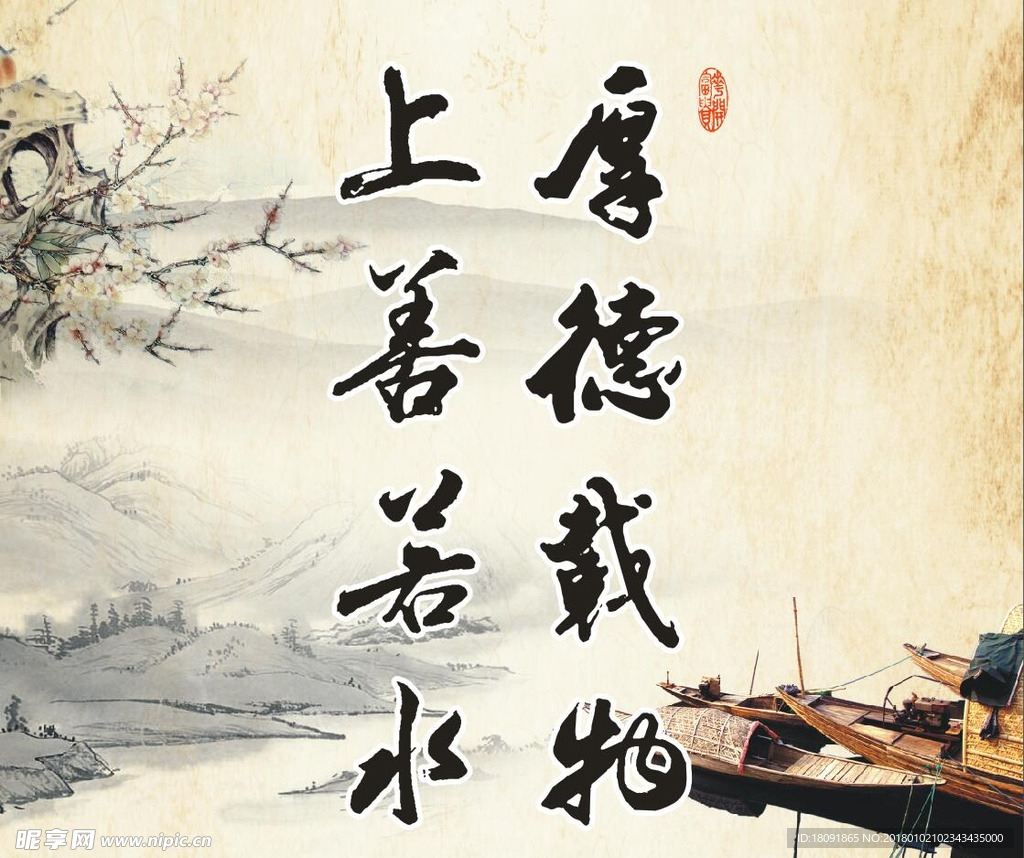 厚德载物
上善若水
花開富貴
昵享网 www.nipic.cn
ID:18091865 NO:20180102102343435000